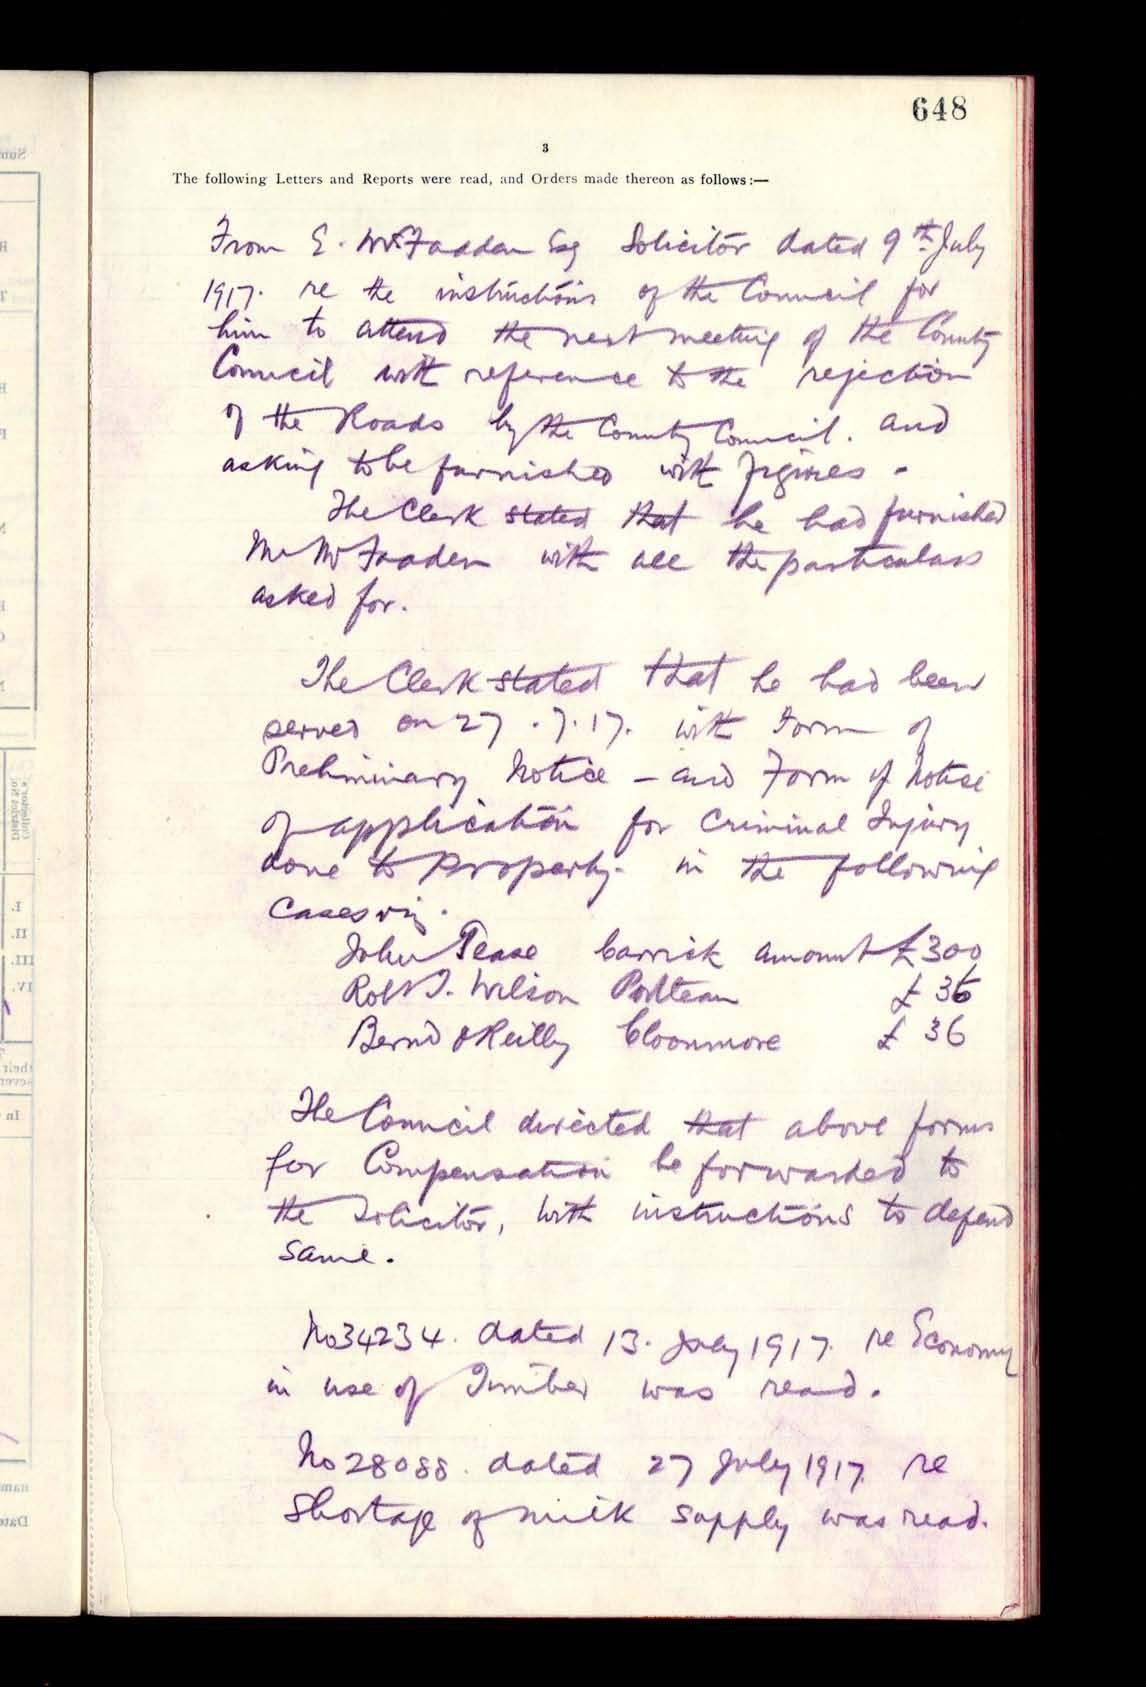 648
3
The following Letters and Reports were read, and Orders made thereon as follows:—
From E. McFadden Esq Solicitor dated 9th July
1917. re the instructions of the Council for
him to attend the next meeting of the County
Council with reference to the rejection
of the Roads by the County Council. and
asking to be furnished with figures -
The Clerk stated that he had furnished
Mr McFadden with all the particulars
asked for.
The Clerk stated that he had been
served on 27.7.17. with Form of
Preliminary Notice - and Form of Notice
of application for Criminal Injury
done to Property. in the following
Cases viz.
John Pease Carrick amount £300
Robt J. Wilson £ 36
Bernd O'Reilly Cloonmore £ 36
The Council directed that above forms
for Compensation be forwarded to
the Solicitor, with instructions to defend
same.
No 34234. dated 13. July 1917. re Economy
in use of Timber was read.
No 28088. dated 27 July 1917 re
Shortage of milk supply was read.